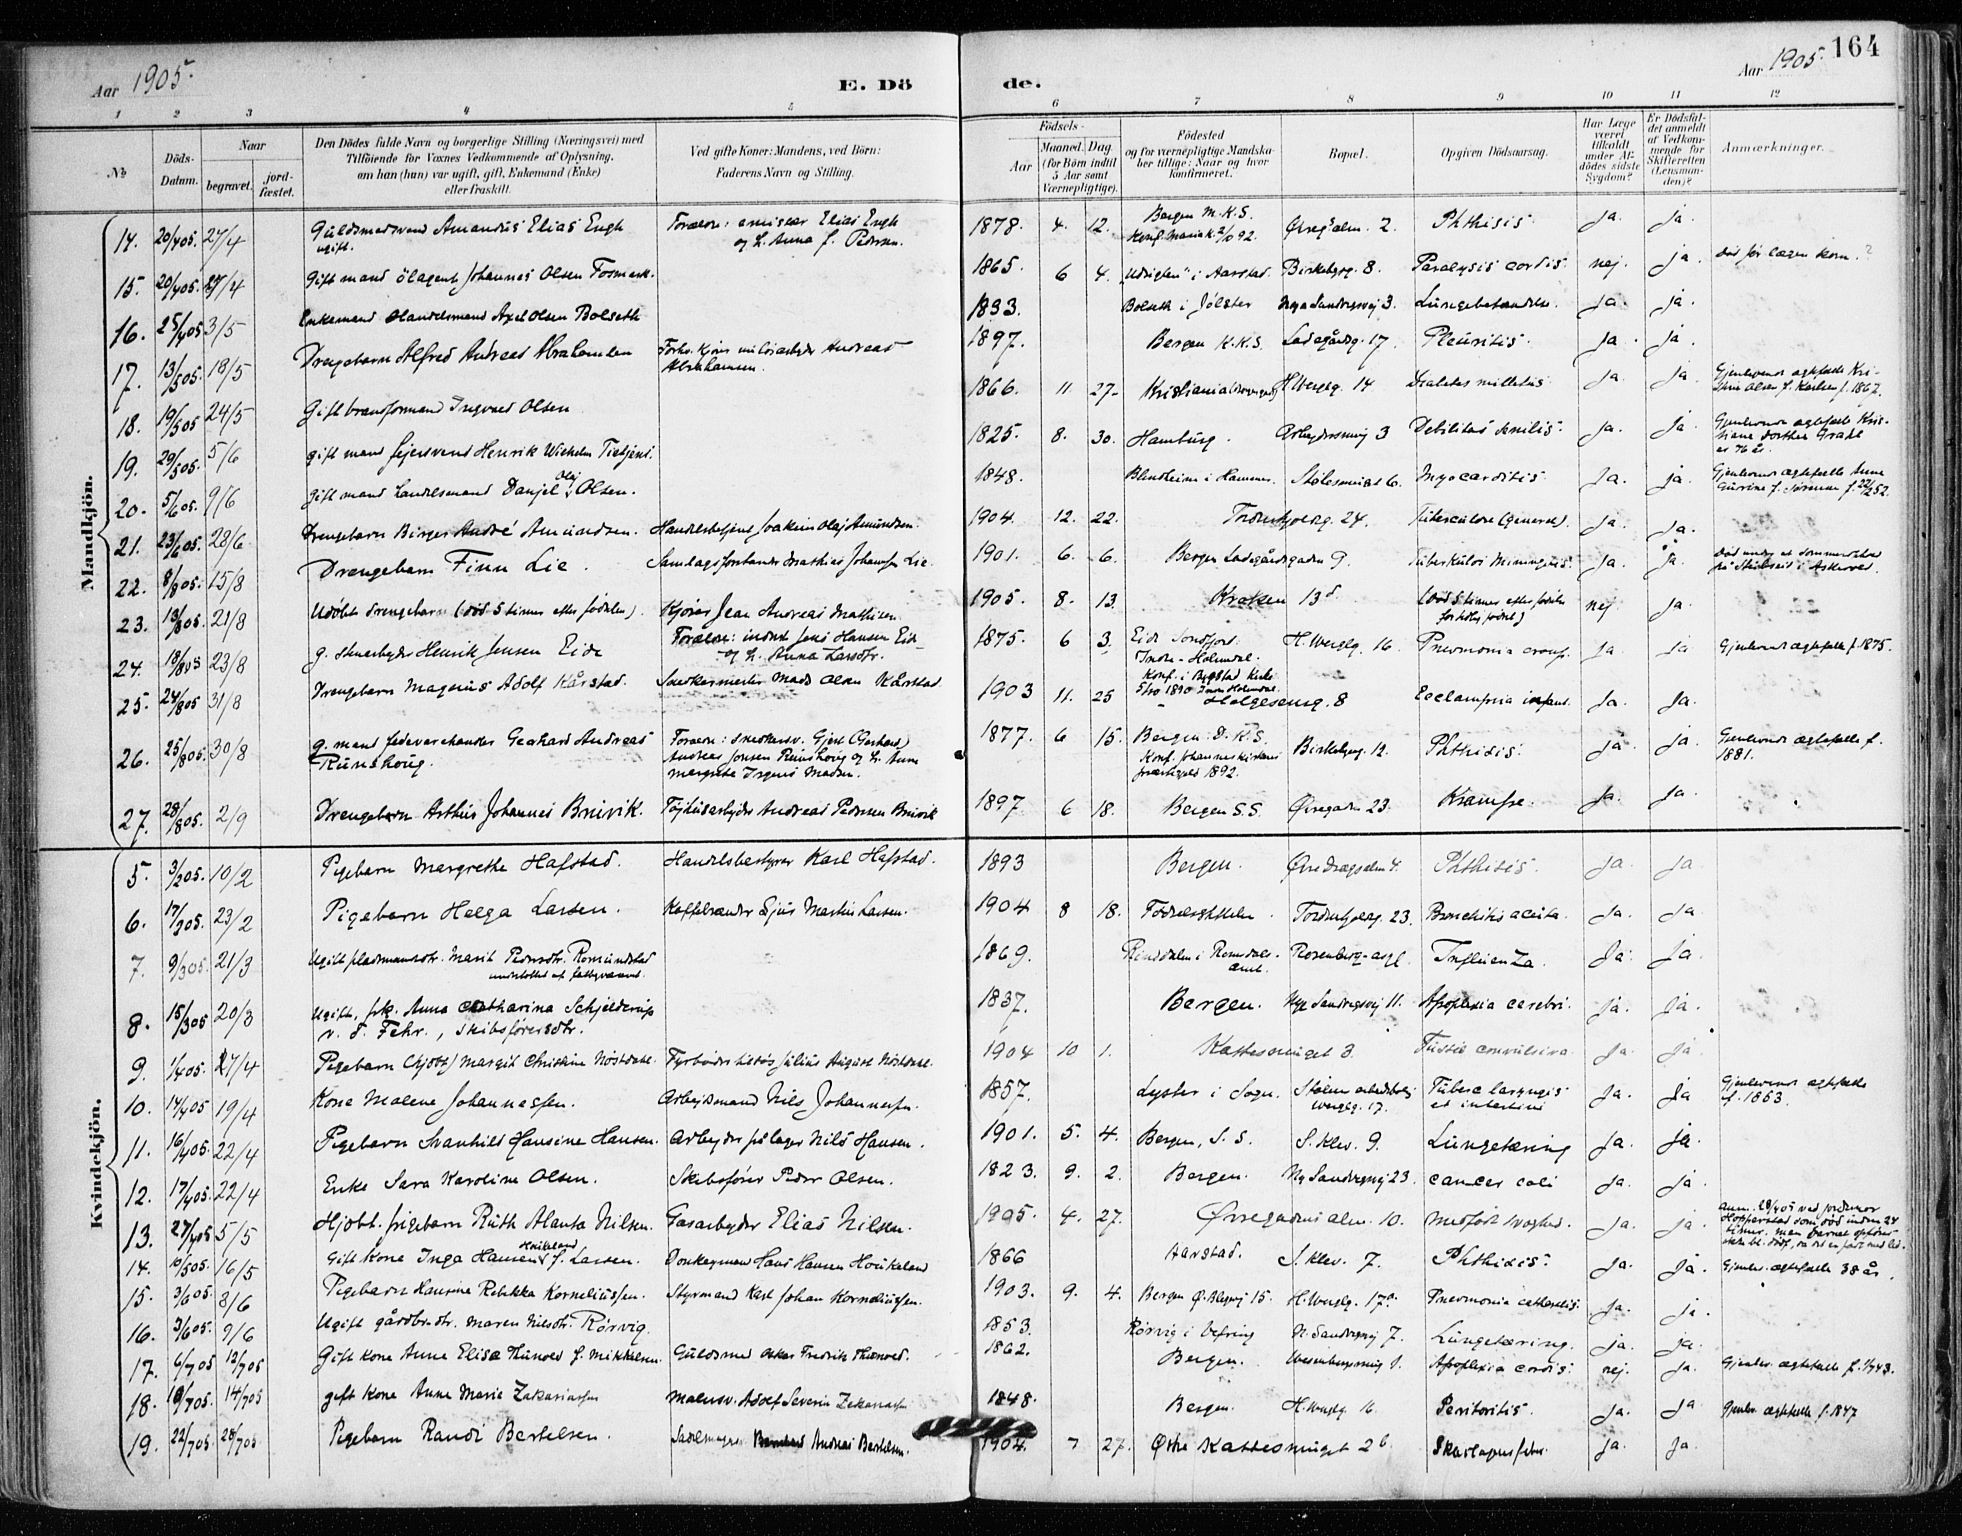 Aar 1905.
E. Dö
de.
Aar 1905. 164
1 2 3 4 5 6 7 8 9 10 11 12
№
Döds-Datum.
Naar
begravet.
jordfæstet.
Den Dödes fulde Navn og borgerlige Stilling (Næringsvei) med
Tilföiende for Voxnes Vedkommende af Oplysning,
om han (hun) var ugift, gift, Enkemand (Enke)
eller fraskilt.
Ved gifte Koner: Mandens, ved Börn:
Faderens Navn og Stilling.
Födsels-
Aar
Maaned. Dag.
(for Börn indtil
5 Aar samt
Værnepligtige).
Födested
og for værnepligtige Mandska-
ber tillige: Naar og hvor
konfirmeret.
Bopæl.
Opgiven Dödsaarsag.
Har Læge
været
tilkaldt
under Af-
dödes sidste
Sygdom?
Er Dödsfal-
det anmeldt
af Vedkom-
mende for
Skifteretten
(Lensman-
den)?
Anmærkninger.
Mandkjön.
14. 20/4 05. 27/4 Guldsmedsvend Amandus Elias Engh ugift. Forældre: emissær Elias Engh og h. Anna f. Pedersen. 1878. 4. 12. Bergen M.K.S. Konf. Mariak. 2/10 92. Øvreg. alm. 2. Phthisis. ja. ja.
15. 20/4 05. 27/4 Gift mand ølagent Johannes Olsen Fosmark. 1865. 6 4. "Udsigten" i Aarstad. Birkebgg. 8. Paralysis cordis. nej. ja. død før lægen kom.
16. 25/4 05 3/5 Enkemand Handelsmand Axel Olsen Bolseth 1833. Bolseth i Jølster Nye Sandvigsvej 3. Lungebetændelse. ja. ja.
17. 13/5 05. 18/5 Drengebarn Alfred Andreas Abrahamsen Andreas Abrahamsen. 1897. Bergen K.K.S. Ladegårdsg. 17 Pleuritis. ja. ja.
18. 19/5 05. 24/5 Gift brandformand Ingvald Olsen 1866. 11 27. Kristiania H. Wergelg. 14. Diabetes mellitus. ja. ja. Gjenlevende ægtefælle Kristine Olsen f. Karlsen f. 1867.
19. 29/5 05. 5/6 gift mand fejersvend Henrik Wilhelm Tietjens. 1825. 8. 30. Hamburg. Arbejdersmug 3 Debilitas senilis. ja. ja. Gjenlevende ægtefælle Kristiane Dorthea Gradt er 76 år.
20. 5/6 05. 9/6 gift mand handelsmand Danjel Olaj Olsen. 1848. Stølesmuget 6. Myocarditis. ja. ja. Gjenlevende ægtefælle Anne Gurine f. Sørensen f. 22/12 52.
21. 23/6 05. 28/6 Drengebarn Birger André Amundsen. Handelsbetjent Joakim Olaj Amundsen. 1904. 12. 22. Tordenskjoldsg. 24. Tuberculose (general). ja. ja.
22. 8/8 05. 15/8 Drengebarn Finn Lie. Samlagsforstander Mathias Johansen Lie. 1901. 6. 6. Bergen Ladegårdsgaden 9. Tuberkuløs Meningitis. ja. ja.
23. 13/8 05. 21/8 Udøbt drengebarn (død 5 timer efter fødselen). Kjører Jean Andreas Mathisen. 1905. 8. 13. Kroken 13 d. (død 5 timer efter fødselen for tidlig født) nej. ja.
24. 18/8 05 23/8 g. skoarbejder Henrik Jensen Eide Forældre: indst Jens Hansen Eide og h. Anna Larsdtr. 1875. 6 3. Eide Søndfjord. Indre-Holmedal. Konf. i Bygstad Kirke 5/10 1890 Indre Holmedal. H. Wergelg. 16. Pneumonia croup. ja ja. Gjenlevende ægtefælle f. 1875.
25. 24/8 05 31/8 Drengebarn Magnus Adolf Kårstad. Snedkermester Mads Olsen Kårstad. 1903 11. 25 Holgesensg. 8 Ecclampsia infant. ja. ja.
26. 25/8 05. 30/8 g. mand fedevarehandler Gerhard Andreas Runshoug. Forældre: snedkersv. Gjert (Gerhard) Andreas Jonsen Runshoug og h. Anne Margrete Irgens Madsen. 1877. 6 15. Bergen. D.K.S. Konf. Johanneskirkens prestegjeld 1892. Birkebgg. 12. Phthisis. ja ja. Gjenlevende ægtefælle f. 1881.
27. 28/8 05. 2/9 Drengebarn Arthur Johannes Brivik. Tøjhusarbejder Andreas Pedersen Brivik 1897 6 18. Bergen S.S. Øvregaden 23. Krampe. ja. ja.
Kvindekjön.
5. 3/2 05. 10/2 Pigebarn Margrethe Hafstad. Handelsbestyrer Karl Hafstad. 1893 Bergen. Øvre Dragsalm 4. Phthisis. ja. ja
6. 17/2 05. 23/2 Pigebarn Helga Larsen. Kaffebrænder Sjur Martin Larsen. 1904 8 18. Fødselsstiftelsen. Tordenskjoldsg. 23. Bronchitis acuta. ja. ja
7. 9/3 05. 21/3 Ugift pladsmandsdtr. Marit Pedersdtr. Romundstad understøttet af fattigvæsenet. 1869. Rinddalen i Romsdals amt. Rosenberg-asyl. Influenza. ja. ja.
8. 15/3 05 20/3 Ugift, frk. Anna Catharina Schjelderup v. d. Fehr., skibsførersdtr. 1837. Bergen. Nye Sandvigsvej 11. Apoplexia cerebri. ja. ja.
9. 1/4 05. 17/4 Pigebarn (hjdbt) Margit Christine Nøstdahl. Fyrbøder Julius August Nøstdahl. 1904 10 1. Kattesmuget 3. Tussis convulsiva. ja. ja.
10. 14/4 05 19/4 Kone Malene Johannessen. Arbejdsmand Nils Johannessen. 1857. Lyster i Sogn. Stølen arbeiderbolig Wergelg. 17. Tuberc laryngis et intestini ja. ja Gjenlevende ægtefælle f. 1863.
11. 16/4 05. 22/4 Pigebarn Svanhild Hansine Hansen. Arbejder på lager Nils Hansen. 1901. 5. 4. Bergen, S. S. S. Klev. 9. Lungetæring ja. ja.
12. 17/4 05. 22/4 Enke Sara Karoline Olsen. Skibsfører Peder Olsen. 1823. 9. 2. Bergen. Ny Sandvigsvej 23. cancer coli ja. ja.
13. 27/4 05 5/5 Hjdbt. pigebarn Ruth Alanta Nilsen. Gasarbejder Elias Nilsen. 1905. 4. 27. Øvregadens alm. 10. Medfødt svaghed. ja. ja.
14. 10/5 05. 16/5 Gift kone Inga Hansen Haukeland f. Larsen. Donkeyman Hans Hansen Haukeland 1866 Aarstad. S. Klev. 7. Phthisis. ja. ja. Gjenlev. ægtefælle 38 år.
15. 3/6 05. 8/6 Pigebarn Laurine Rebekka Korneliussen. Styrmand Karl Johan Korneliussen. 1903. 9. 4. Bergen Ø. Blegevej 15. H. Wergelg. 17 a. Pneumonia catharalis. ja. ja.
16. 3/6 05. 9/6 Ugift gårdbr.dtr. Maren Nilsdtr. Rørvig. 1853. Rørvig i Vefring N. Sandvigsvej 7. Lungetæring. ja. ja.
17. 6/7 05 12/7 05 Gift kone Anne Elisa Thunold f. Mikkelsen. Guldsmed Oskar Fredrik Thunold. 1862. Bergen. Wesenbergsmug 1. Apoplexia cordis. nej. ja. Gjenlev. ægtefælle f.
18. 10/7 05. 14/7 05 gift kone Anne Marie Zakariassen Malersv. Adolf Severin Zakariassen 1848. Bergen. H. Wergelg. 16. Peritonitis. ja. ja Gjenlev. ægtefælle f. 1847
19. 22/7 05 28/7 05 Pigebarn Randi Bertelsen. Sadelmager Andreas Bertelsen. 1904. 7 27. Øvre Kattesmuget 2 b. Skarlagensfeber. ja. ja.